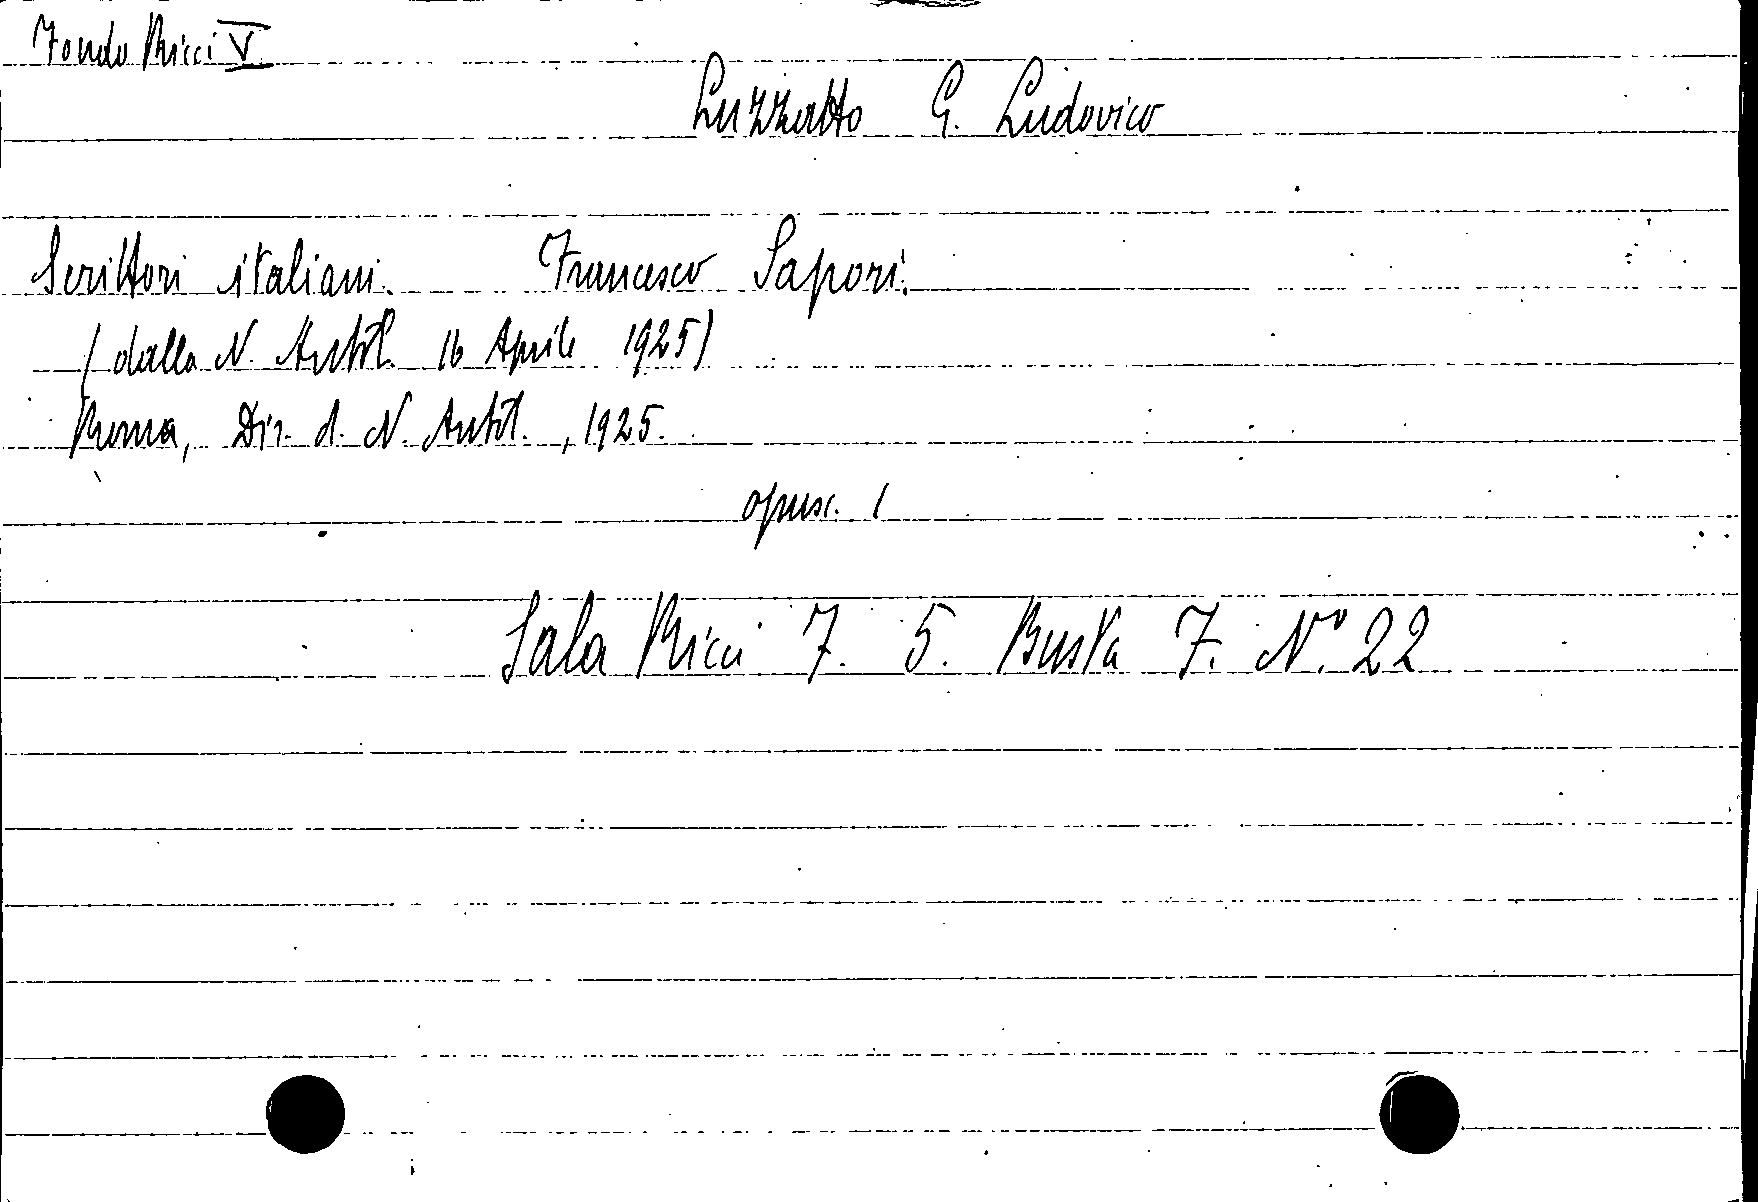 Fondo Ricci V
Luzzatto G. Ludovico
Scrittori italiani. Francesco Sapori.
(dalla N. Antol. 16 Aprile 1925)
Roma, Dir. d. N. Antol., 1925.
opusc. 1
Sala Ricci 7. 5. Busta 7. N° 22